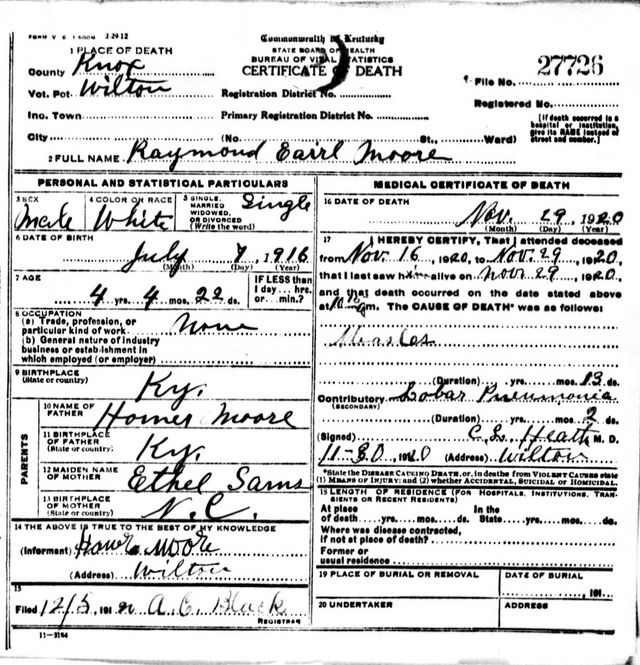 FORM V. S. 1 500M 2-29-12
Commonwealth of Kentucky
STATE BOARD OF HEALTH
BUREAU OF VITAL STATISTICS
CERTIFICATE OF DEATH
1 PLACE OF DEATH
County Knox
Vot. Pct Wilton
Registration District No.
File No. 27726
Inc. Town
Primary Registration District No.
Registered No.
City
(No. St., Ward)
[If death occurred in a hospital or institution, give its NAME instead of street and number.]
2 FULL NAME Raymond Eairl Moore
PERSONAL AND STATISTICAL PARTICULARS
3 SEX Male
4 COLOR OR RACE White
5 SINGLE, MARRIED WIDOWED, OR DIVORCED (Write the word) Single
6 DATE OF BIRTH
July 7, 1916
(Month) (Day) (Year)
7 AGE
4 yrs. 4 mos. 22 ds.
IF LESS than 1 day... hrs. or... min.?
8 OCCUPATION
(a) Trade, profession, or particular kind of work None
(b) General nature of industry business or establishment in which employed (or employer)
9 BIRTHPLACE
(State or country) Ky.
PARENTS
10 NAME OF FATHER Homer Moore
11 BIRTHPLACE OF FATHER (State or country) Ky.
12 MAIDEN NAME OF MOTHER Ethel Sams
13 BIRTHPLACE OF MOTHER (State or country) N.C.
14 THE ABOVE IS TRUE TO THE BEST OF MY KNOWLEDGE
(Informant) Moore
(Address) Wilton
15
Filed 12/5, 1920 A.C. Black
REGISTRAR
11-3184
MEDICAL CERTIFICATE OF DEATH
16 DATE OF DEATH
Nov. 29, 1920
(Month) (Day) (Year)
17 I HEREBY CERTIFY, That I attended deceased
from Nov 16, 1920, to Nov. 29, 1920,
that I last saw him alive on Nov 29, 1920,
and that death occurred on the date stated above
at m. The CAUSE OF DEATH* was as follows:
Measles
(Duration) yrs. mos. 13 ds.
Contributory Lobar Pneumonia
(SECONDARY)
(Duration) yrs. mos. 2 ds.
(Signed) C. L. Heath M. D.
11-30 1920 (Address) Wilton
*State the DISEASE CAUSING DEATH, or, in deaths from VIOLENT CAUSES state
(1) MEANS OF INJURY; and (2) whether ACCIDENTAL, SUICIDAL or HOMICIDAL.
18 LENGTH OF RESIDENCE (FOR HOSPITALS, INSTITUTIONS, TRANSIENTS OR RECENT RESIDENTS)
At place In the
of death yrs. mos. ds. State yrs. mos. ds.
Where was disease contracted,
if not at place of death?
Former or
usual residence
19 PLACE OF BURIAL OR REMOVAL
DATE OF BURIAL
, 191
20 UNDERTAKER
ADDRESS